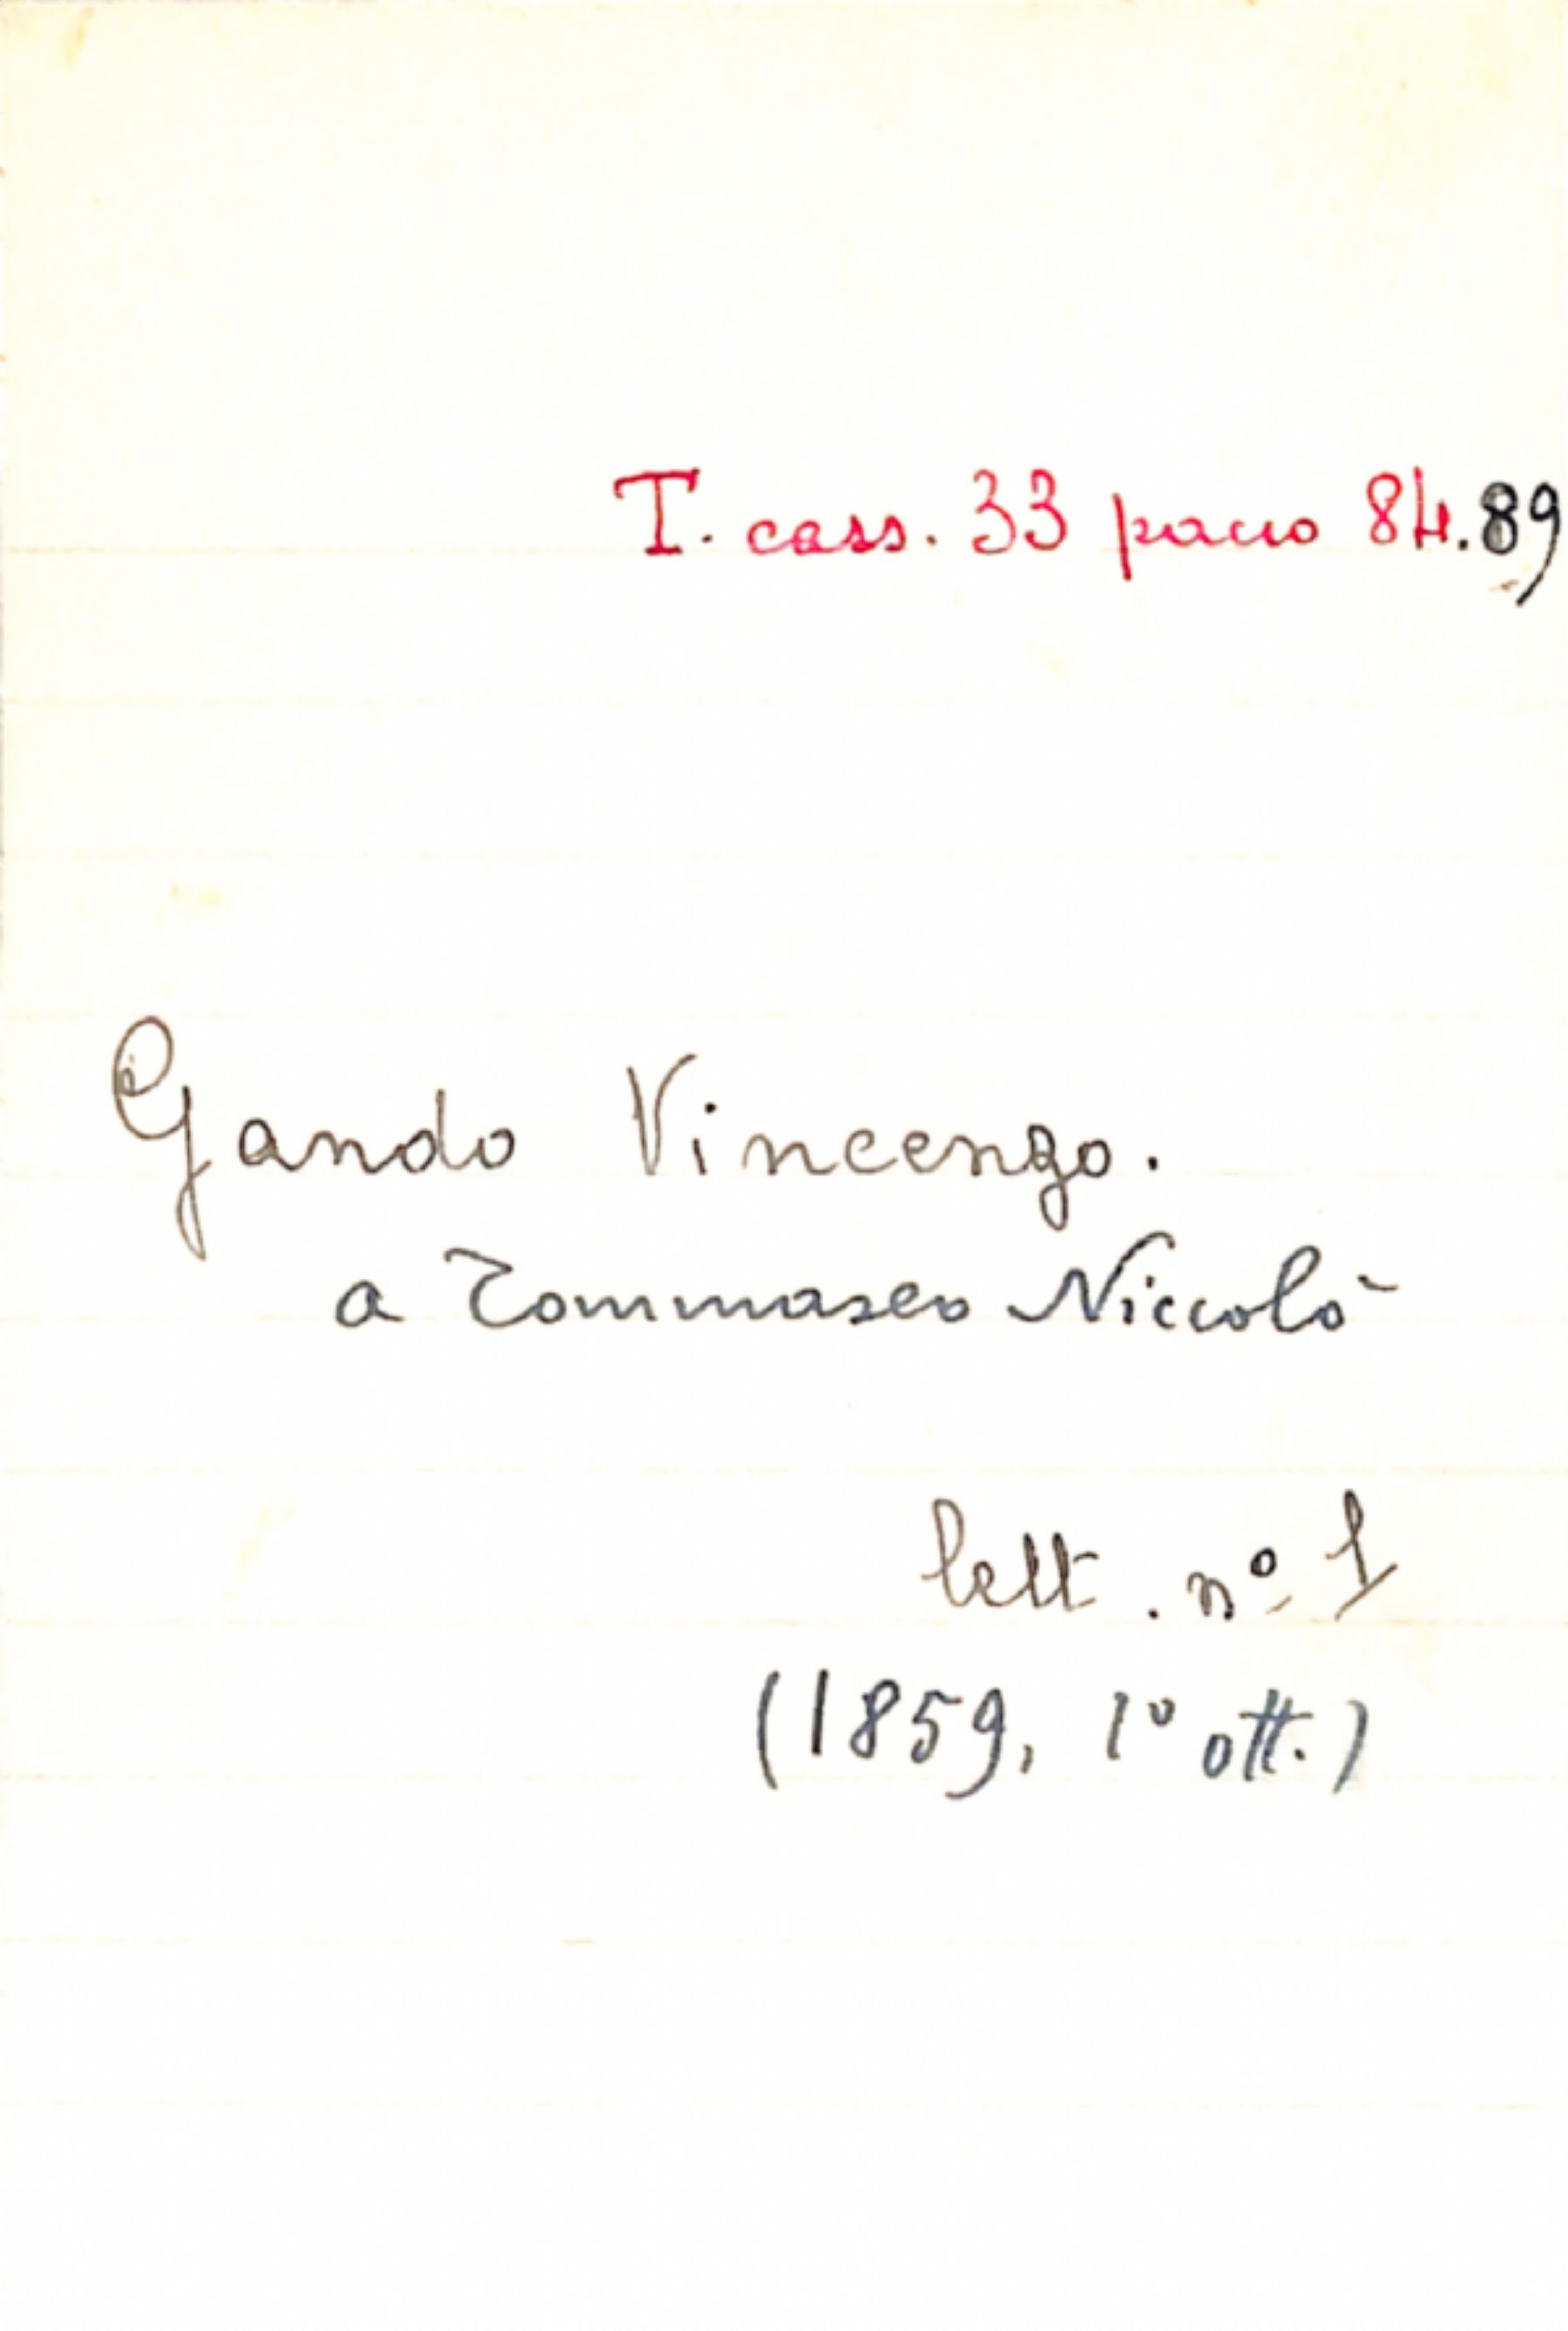 T. cass. 33 pacco 84.89
Gando Vincenzo.
a Tommaseo Niccolò
lett. nº 1
(1859, 1º ott.)